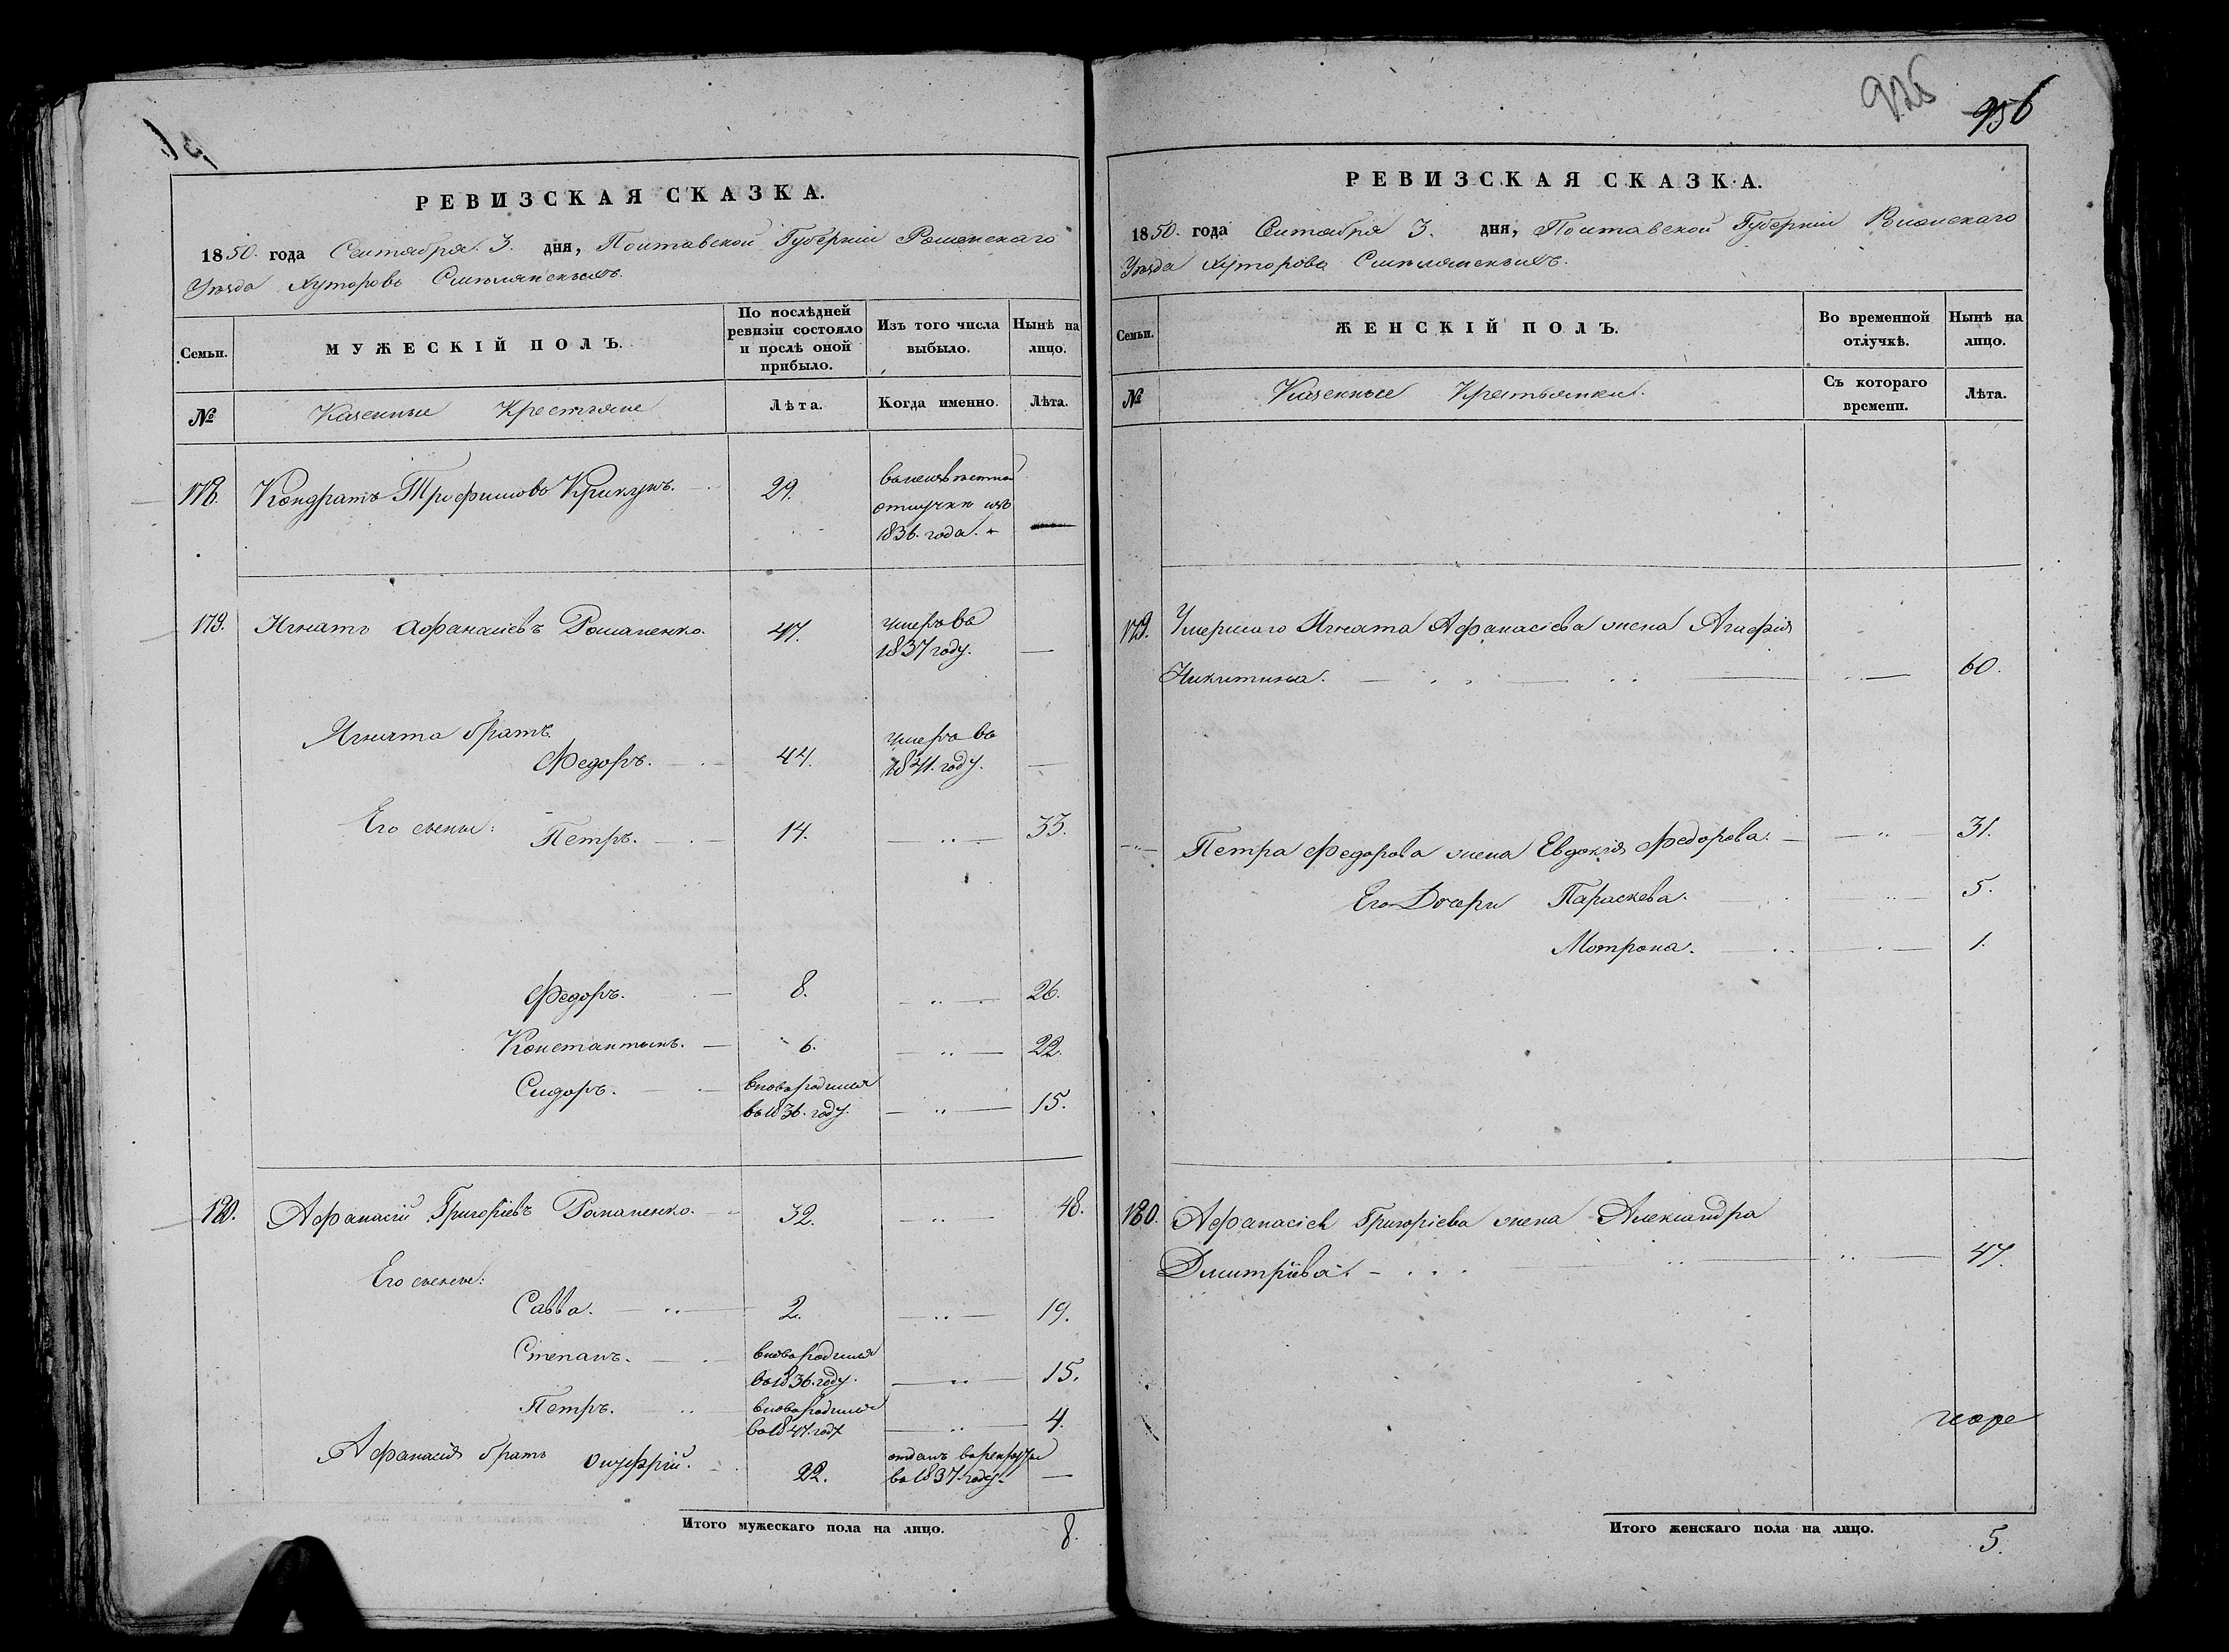 РЕВИЗСКАЯ СКАЗКА.
1850. года Сентября 3. дня, Полтавской Губерніи Роменскаго
Уѣзда Хуторовъ Смѣлянскихъ.
Семьи.
МУЖЕСКІЙ ПОЛЪ.
По послѣдней ревизіи состояло и послѣ оной прибыло.
Изъ того числа выбыло.
Нынѣ на лицо.
№
Казенные Крестьяне
Лѣта.
Когда именно.
Лѣта.
178. Кондратъ Трофимовъ Крикунъ. 29.
отлучки изъ
1836. года.
179. Игнатъ Афанасіевъ Романенко. 47. умеръ въ
1837 году. —
Игната братъ
Федоръ. 44. умеръ въ
1841. году. —
Его сыны: Петръ. 14. 33.
Федоръ. 8. 26.
Константинъ. 6. 22.
Сидоръ. вновь родился
въ 1836. году. 15.
180. Афанасій Григоріевъ Романенко. 32. 48.
Его сыны:
Савва. 2. 19.
Степанъ. вновь родился
въ 1836. году. 15.
Петръ. вновь родился
въ 1847. году 4.
Афанасія братъ Онуфрій. 22. отданъ в рекруты
въ 1837. году. —
Итого мужескаго пола на лицо. 8.
925
956
РЕВИЗСКАЯ СКАЗКА.
1850. года Сентября 3. дня, Полтавской Губерніи Роменскаго
Уѣзда Хуторовъ Смѣлянскихъ.
Семьи.
ЖЕНСКІЙ ПОЛЪ.
Во временной отлучкѣ.
Нынѣ на лицо.
№
Казенные Крестьянки.
Съ котораго времени.
Лѣта.
179. Умершаго Игната Афанасіева жена Агафія
Никитина. 60.
Петра Федорова жена Евдокія Федорова. 31.
Его Дочери Параскева. 5.
Мотрона. 1.
180. Афанасія Григоріева жена Александра
Дмитріева. 47.
Итого женскаго пола на лицо. 5.